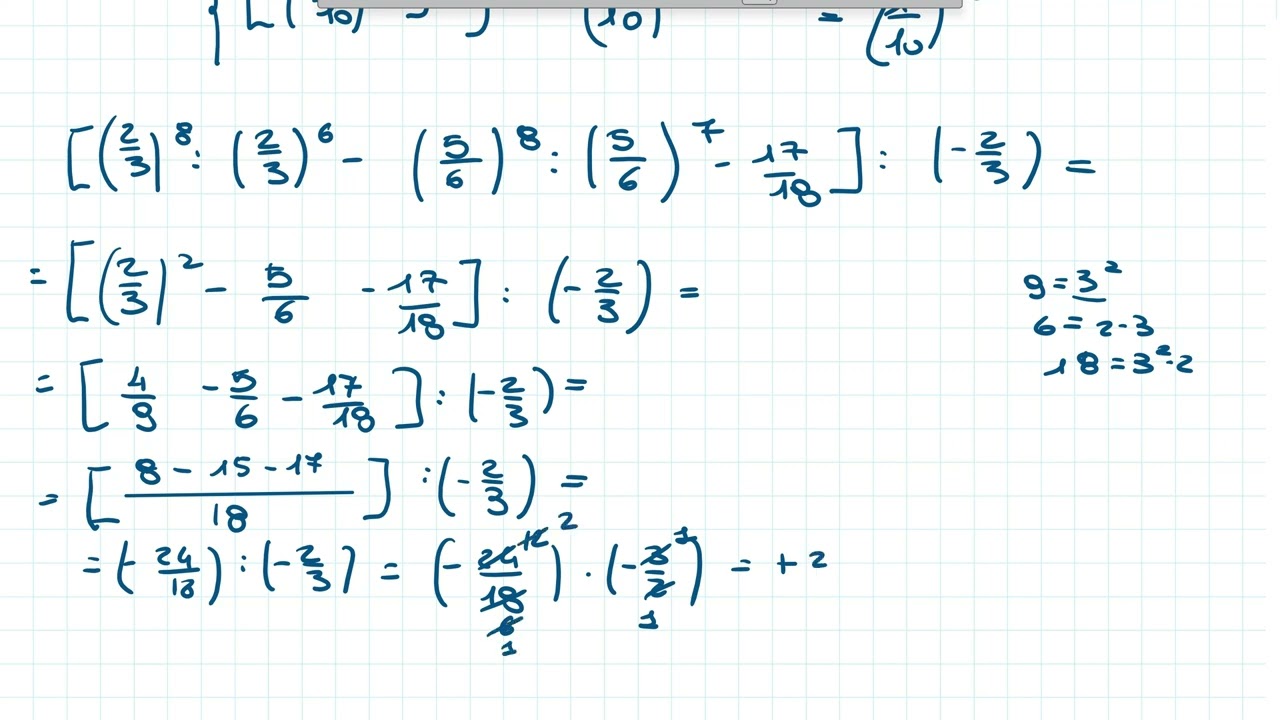 [(2/3)^8 : (2/3)^6 - (5/6)^8 : (5/6)^7 - 17/18] : (-2/3) =
= [(2/3)^2 - 5/6 - 17/18] : (-2/3) =
9 = 3^2
6 = 2·3
18 = 3^2·2
= [4/9 - 5/6 - 17/18] : (-2/3) =
= [(8 - 15 - 17)/18] : (-2/3) =
= (-24/18) : (-2/3) = (-24/18) · (-3/2) = +2